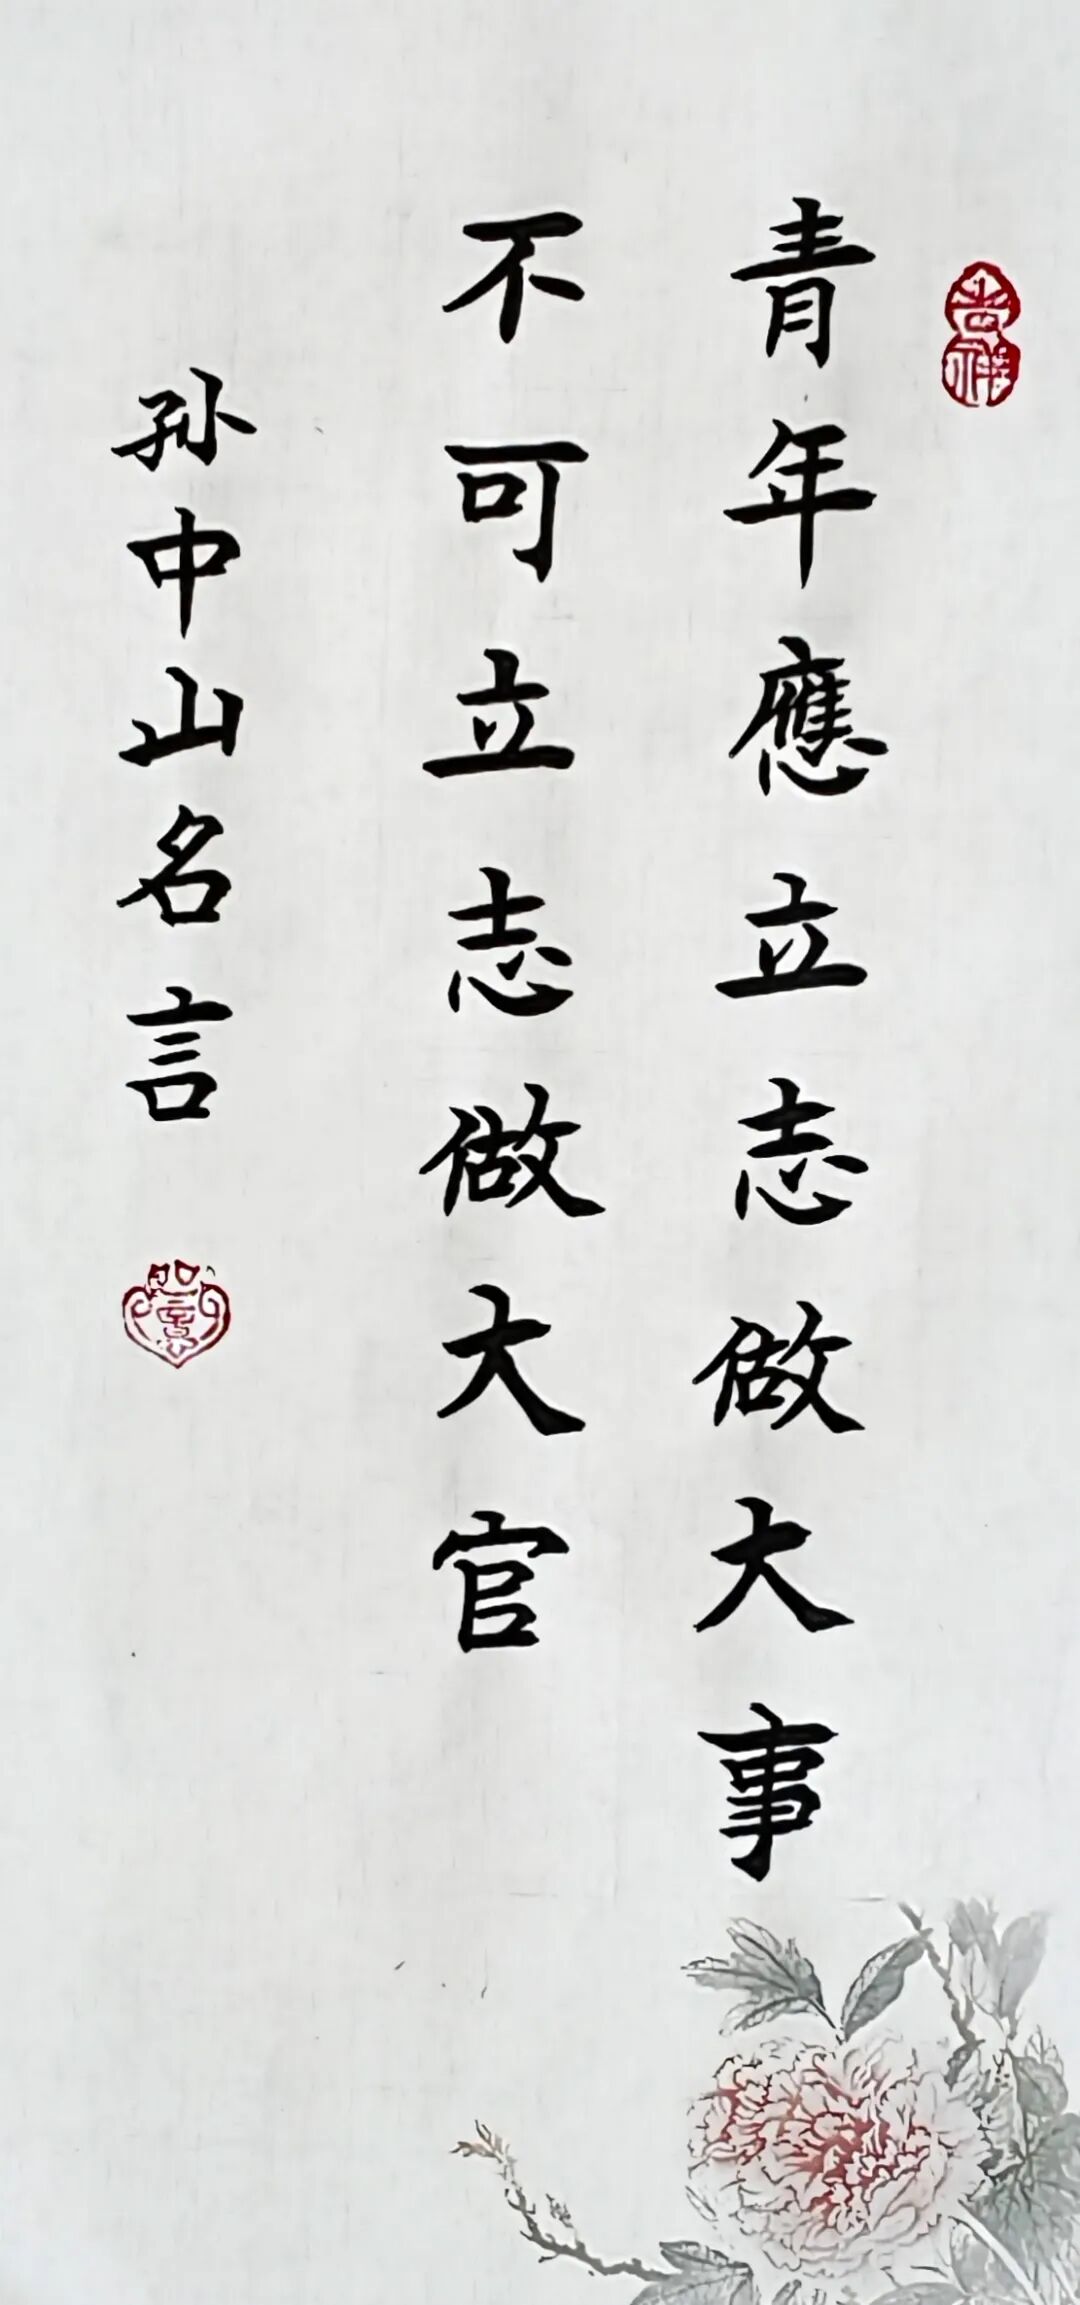 青年應立志做大事
不可立志做大官
孙中山名言
吉祥